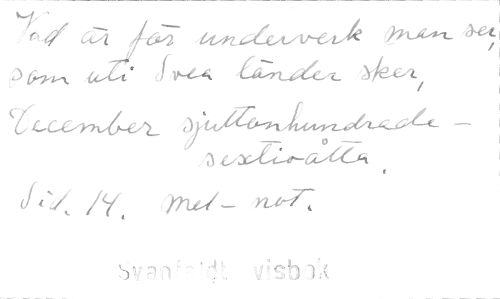 Vad är för underverk man ser,
som uti Svea länder sker,
December sjuttonhundrade-
sextioåtta.
Sid. 14. Mel-not.
Svanfeldt visbok